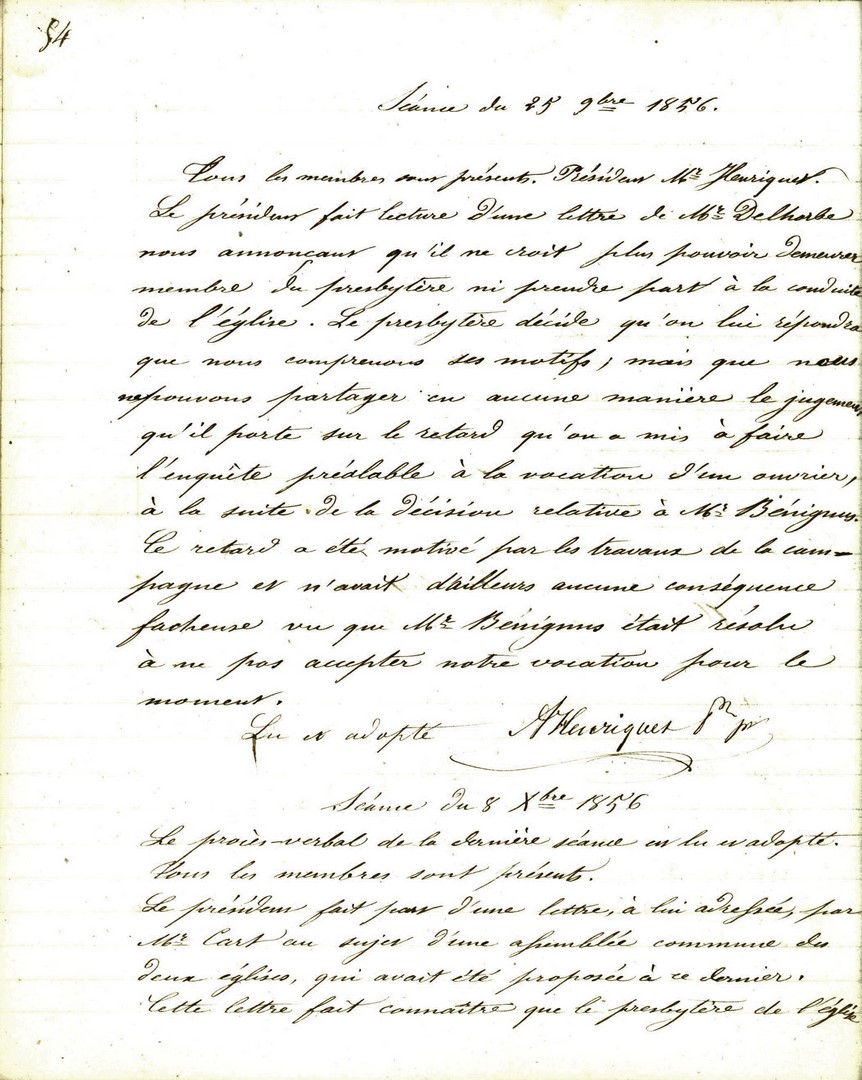 54
Séance du 25 9bre 1856.
Tous les membres sont présents. Président Mr Henriquet.
Le président fait lecture d'une lettre de Mr Delhorbe
nous annonçant qu'il ne croit plus pouvoir demeurer
membre du presbytère ni prendre part à la conduite
de l'église. Le presbytère décide qu'on lui répondra
que nous comprenons ses motifs, mais que nous
ne pouvons partager en aucune manière le jugement
qu'il porte sur le retard qu'on a mis à faire
l'enquète préalable à la vocation d'un ouvrier,
à la suite de la décision relative à Mr Bénignus.
Ce retard a été motivé par les travaux de la cam=
pagne et n'avait d'ailleurs aucune conséquence
facheuse vu que Mr Bénignus était résolu
à ne pas accepter notre vocation pour le
moment.
Lu et adopté AHenriquet
Séance du 8 Xbre 1856
Le procès-verbal de la dernière séance est lu et adopté.
Tous les membres sont présents.
Le président fait part d'une lettre, à lui adressée, par
Mr Cart au sujet d'une assemblée commune des
deux églises, qui avait été proposée à ce dernier.
Cette lettre fait connaître que le presbytère de l'église